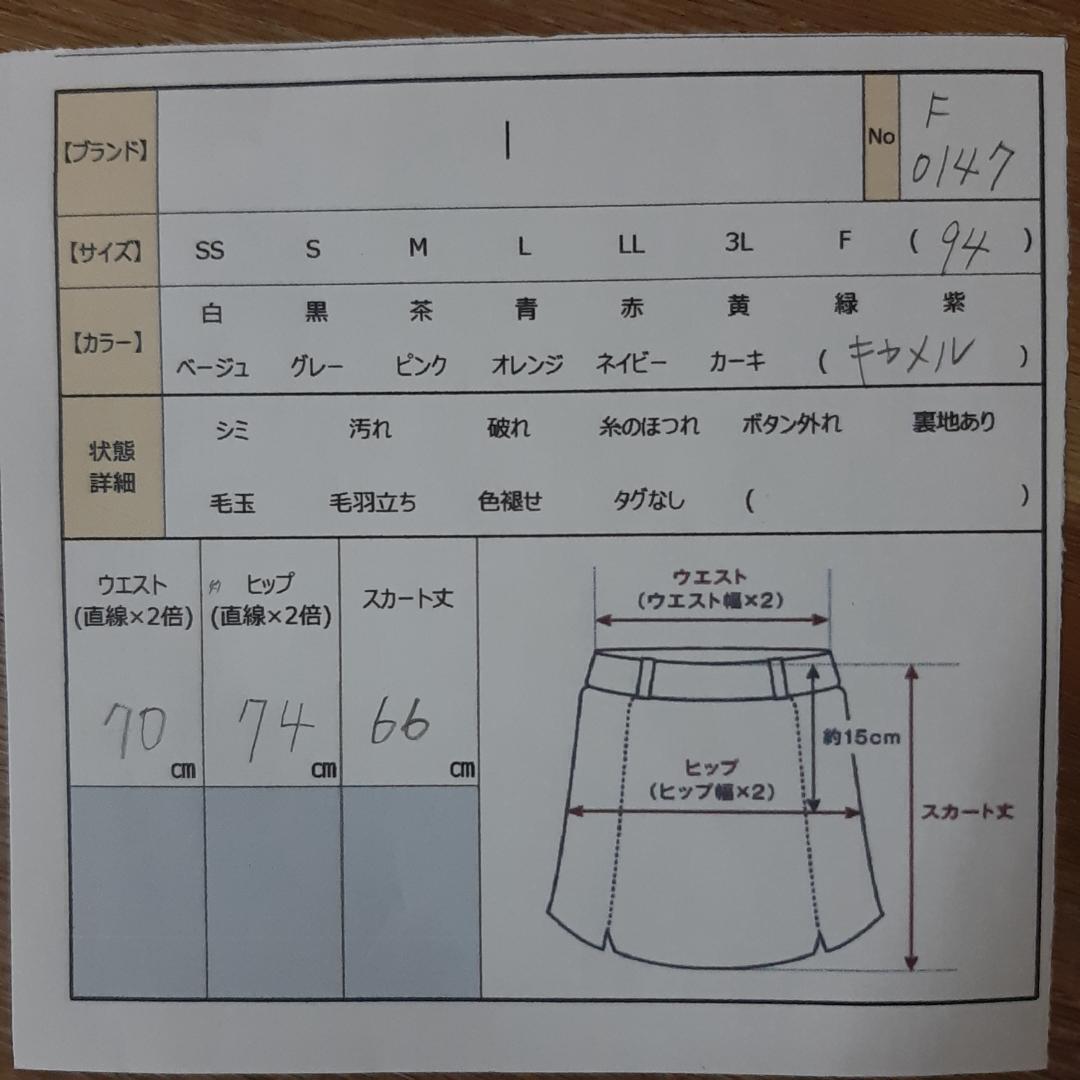 【ブランド】 | No F
0147
【サイズ】 SS S M L LL 3L F ( 94 )
【カラー】 白 黒 茶 青 赤 黄 緑 紫
ベージュ グレー ピンク オレンジ ネイビー カーキ ( キャメル )
状態
詳細
シミ 汚れ 破れ 糸のほつれ ボタン外れ 裏地あり
毛玉 毛羽立ち 色褪せ タグなし ( )
ウエスト
(直線×2倍)
70
cm
ヒップ
(直線×2倍)
74
cm
スカート丈
66
cm
ウエスト
(ウエスト幅×2)
約15cm
ヒップ
(ヒップ幅×2)
スカート丈